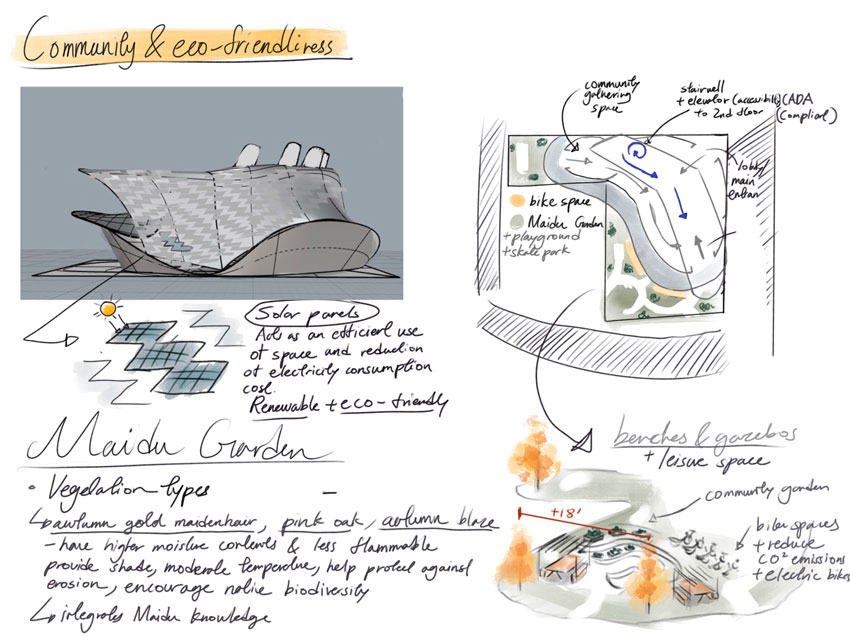 Community & eco-friendliness
community
gathering
space
stairwell
+ elevator (accessibility) (ADA
to 2nd floor
(Compliant)
lobby/
main
entran
bike space
Maidu Garden
+ playground
+ skate park
Solar panels
Acts as an efficient use
of space and reduction
of electricity consumption
cost.
Renewable + eco-friendly
Maidu Garden
• Vegetation types
autumn gold maidenhair, pink oak, autumn blaze
- have higher moisture contents & less flammable
provide shade, moderate temperature, help protect against
erosion, encourage native biodiversity
integrates Maidu knowledge
benches & gazebos
+ leisure space
community garden
+18'
bike spaces
+ reduce
CO² emissions
+ electric bikes